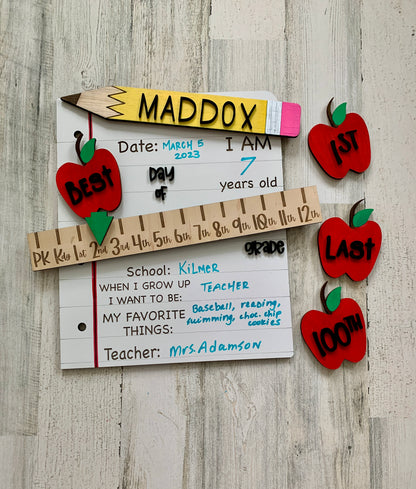 MADDOX
Date: MARCH 5 2023
I AM
7
years old
BEST
DAY
OF
PK Kdg 1st 2nd 3rd 4th 5th 6th 7th 8th 9th 10th 11th 12th
GRADE
School: KILMER
WHEN I GROW UP I WANT TO BE: TEACHER
MY FAVORITE THINGS: Baseball, reading, swimming, choc. chip cookies
Teacher: Mrs. Adamson
1ST
LAST
100TH